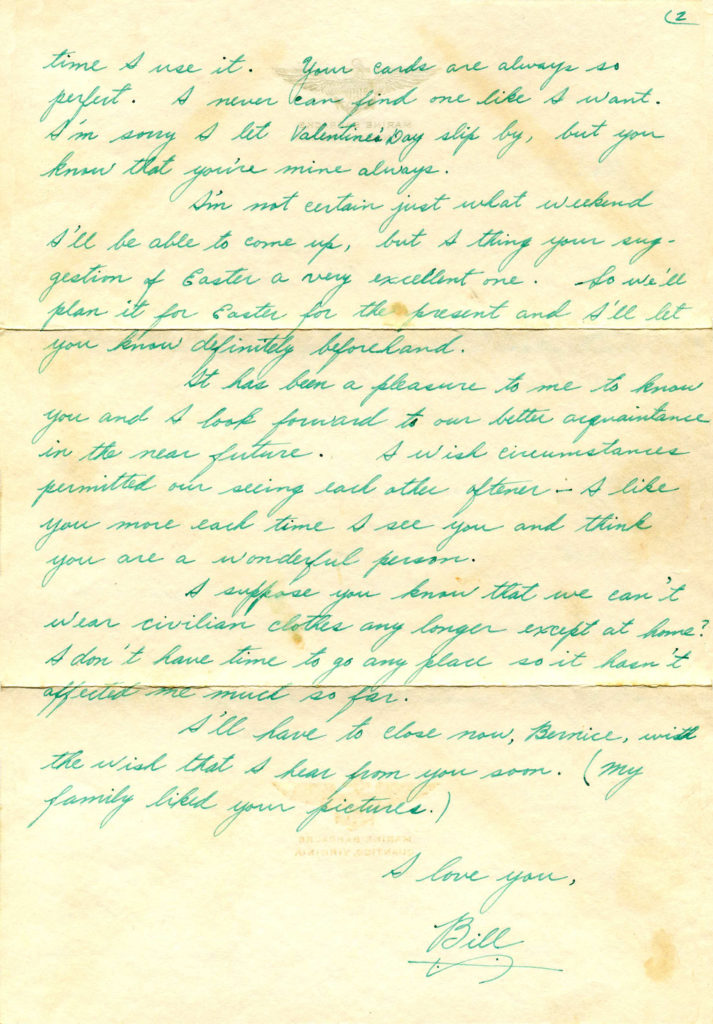 (2
time I use it. Your cards are always so
perfect. I never can find one like I want.
I'm sorry I let Valentine's Day slip by, but you
know that you're mine always.
I'm not certain just what weekend
I'll be able to come up, but I thing your sug-
gestion of Easter a very excellent one. So we'll
plan it for Easter for the present and I'll let
you know definitely beforehand.
It has been a pleasure to me to know
you and I look forward to our better acquaintance
in the near future. I wish circumstances
permitted our seeing each other oftener - I like
you more each time I see you and think
you are a wonderful person.
I suppose you know that we can't
wear civilian clothes any longer except at home?
I don't have time to go any place so it hasn't
affected me much so far.
I'll have to close now, Bernice, with
the wish that I hear from you soon. (My
family liked your pictures.)
MARINE BARRACKS
QUANTICO, VIRGINIA
I love you,
Bill